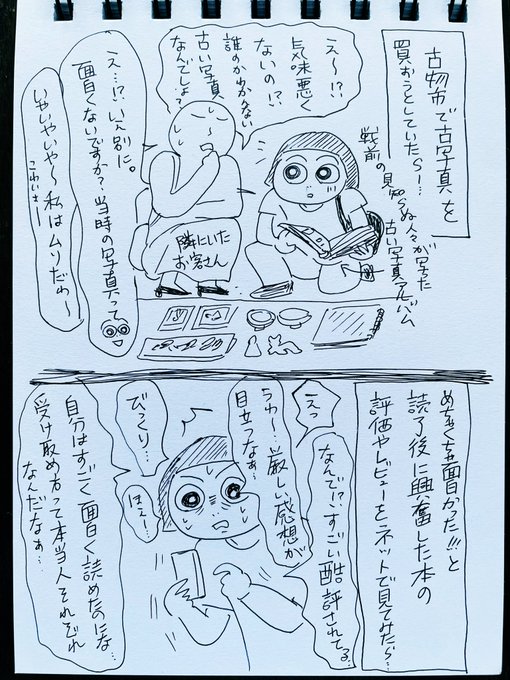 古物市で古写真を
買おうとしていたら…
え〜!?
気味悪く
ないの!?
誰のかわかんない
古い写真
なんでしょ?
戦前の見知らぬ人々が写った
古い写真アルバム
隣にいた
お客さん
え…!?いえ別に。
面白くないですか?当時の写真って
いやいやいや〜私はムリだわ〜
こわいさー
めちゃくちゃ面白かった!!!と
読了後に興奮した本の
評価やレビューをネットで見てみたら…
えっ
なんで!?すごい酷評されてる。
うわー…厳しい感想が
目立つなぁ…
びっくり…
ほぇー…
自分はすごく面白く読めたのにな…
受け取め方って本当人それぞれ
なんだなぁ…